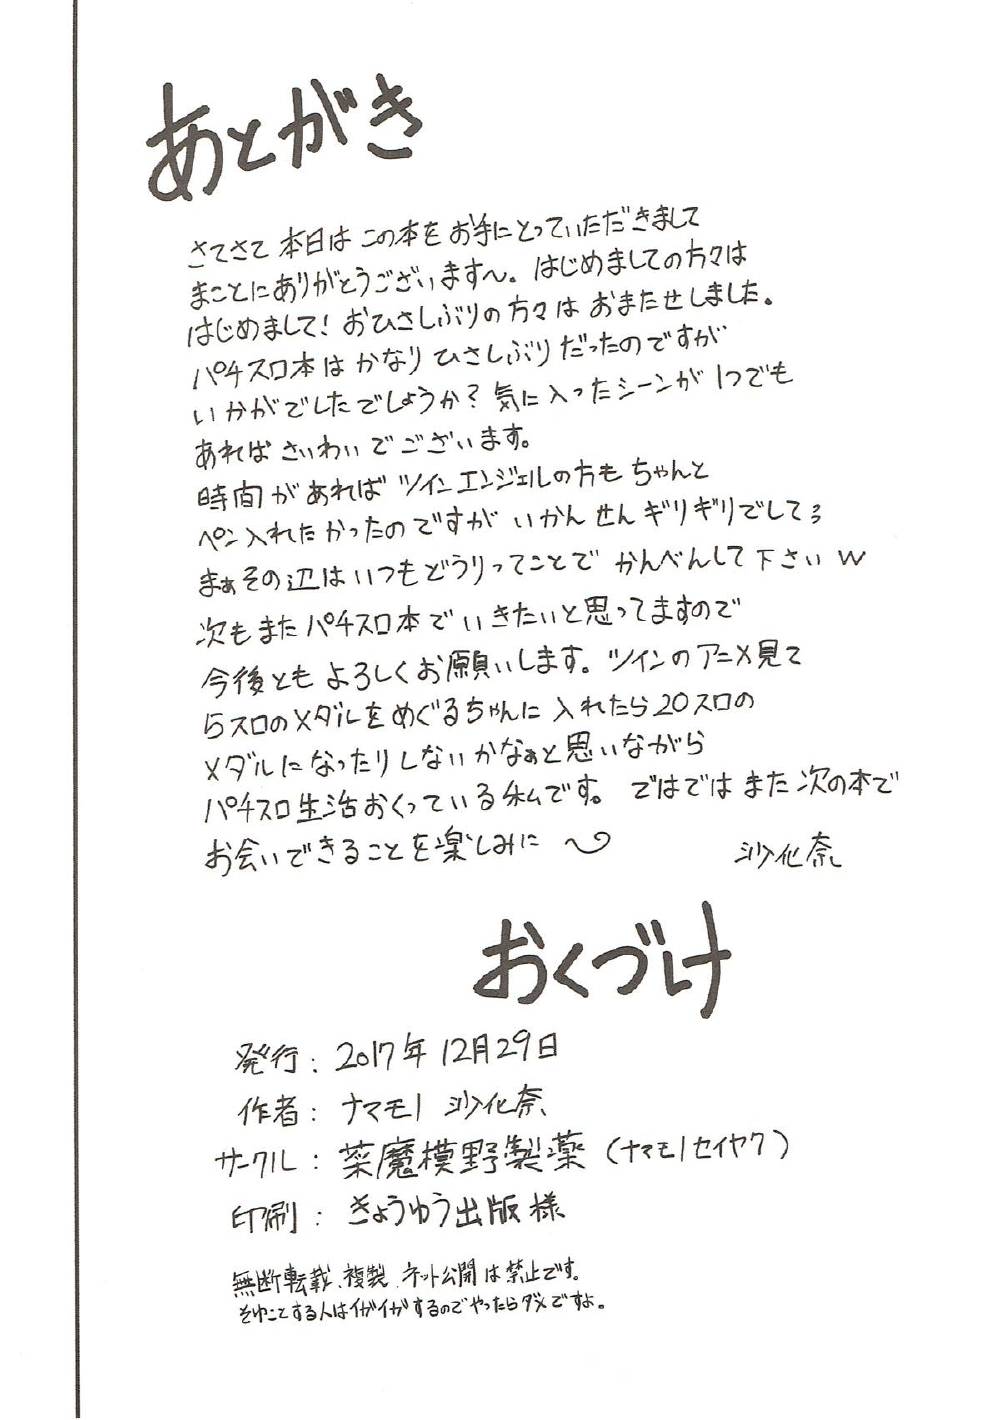 あとがき
さてさて 本日は この本を お手にとっていただきまして
まことにありがとうございます〜。はじめましての方々は
はじめまして! おひさしぶりの方々は おまたせしました。
パチスロ本は かなり ひさしぶりだったのですが
いかがでしたでしょうか? 気に入ったシーンが 1つでも
あれば さいわいでございます。
時間があれば ツインエンジェルの方も ちゃんと
ペン入れたかったのですが いかんせんギリギリでして
まぁその辺は いつもどうりってことで かんべんして下さいw
次もまた パチスロ本で いきたいと思ってますので
今後とも よろしくお願いします。ツインのアニメ見て
5スロのメダルをめぐるちゃんに 入れたら20スロの
メダルになったりしないかなぁと思いながら
パチスロ生活おくっている私です。ではでは また次の本で
お会いできることを楽しみに 〜
沙化奈
おくづけ
発行: 2017年 12月29日
作者: ナマモノ 沙化奈
サークル: 菜魔模野製薬 (ナマモノセイヤク)
印刷: きょうゆう出版様
無断転載、複製、ネット公開は禁止です。
そゆことする人はイガイガするのでやったらダメですよ。